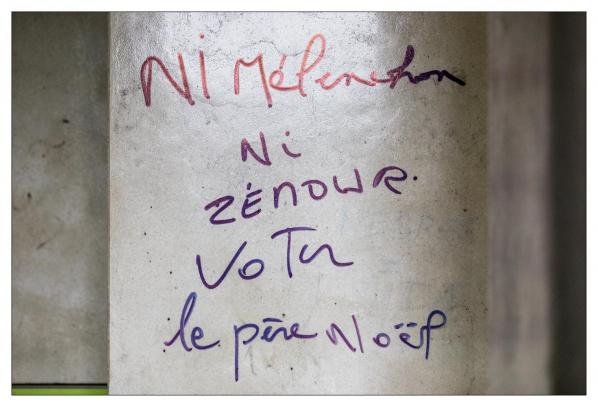 Ni Mélenchon
Ni
ZÉMOUR.
VoTer
le père Noël